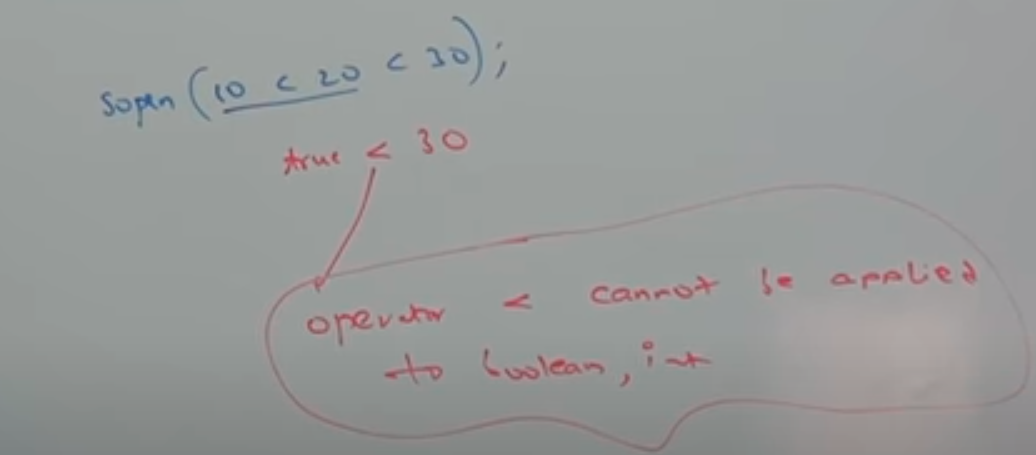 Sopln (10 < 20 < 30);
true < 30
operator < cannot be applied
to boolean, int